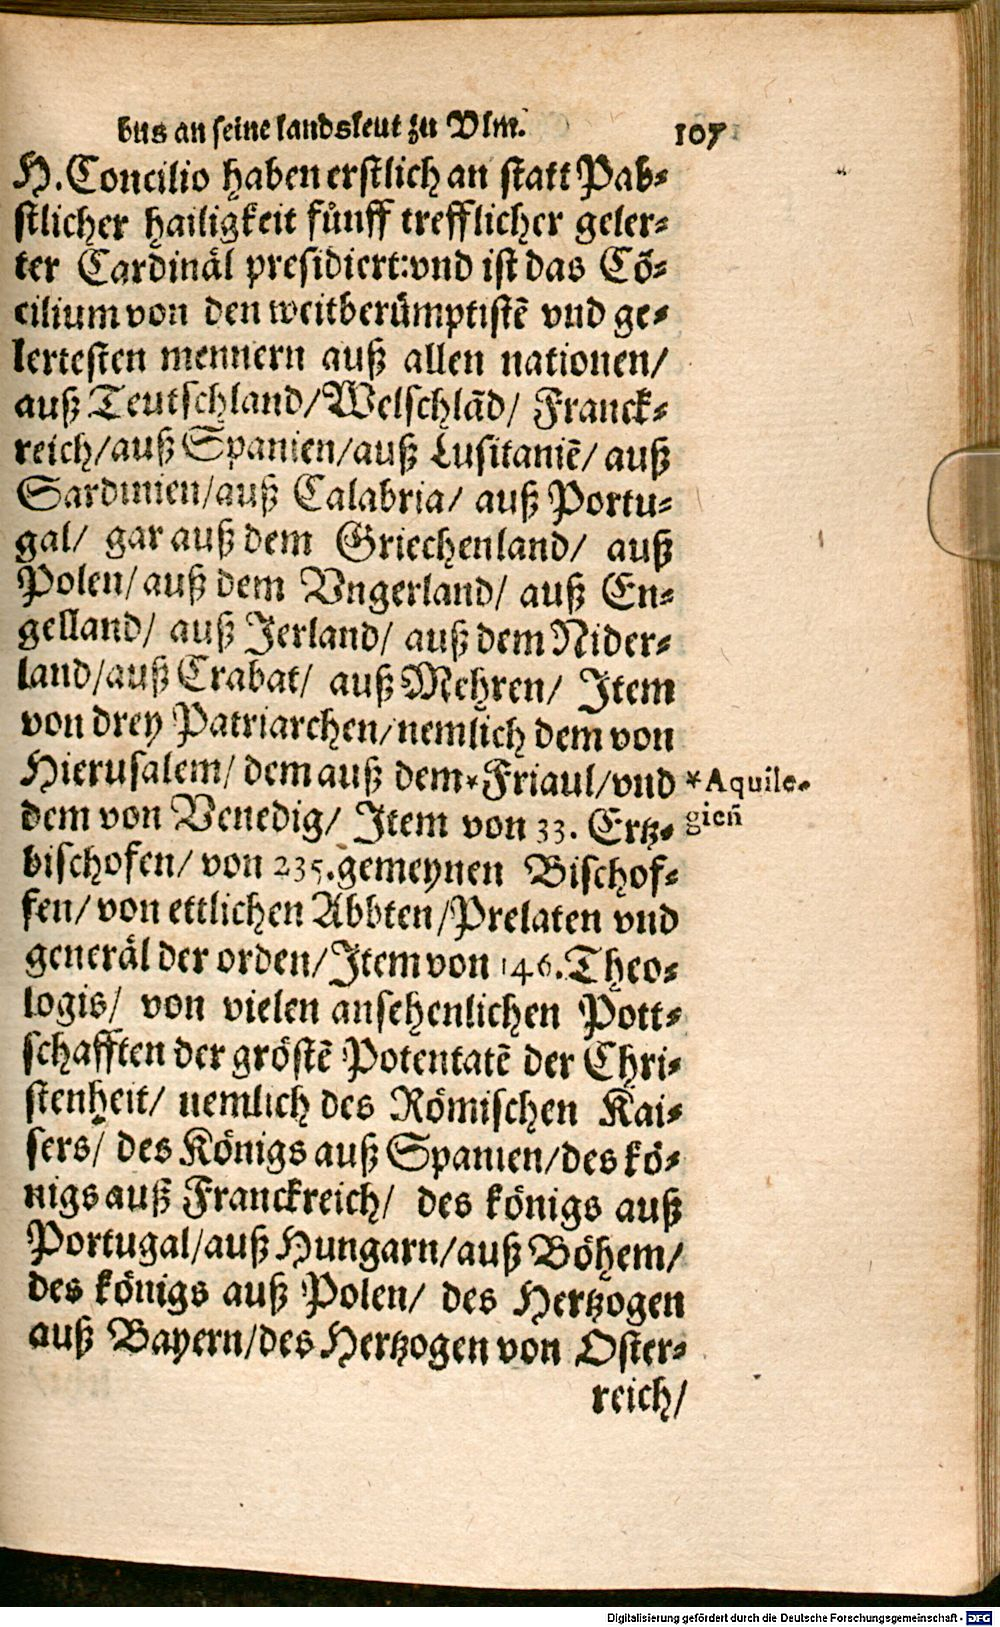 bus an seine landsleut zu Vlm. 107
H. Concilio haben erstlich an statt Pab⸗
stlicher hailigkeit fünff trefflicher geler⸗
ter Cardinäl presidiert: vnd ist das Cõ⸗
cilium von den weitberümptistẽ vnd ge⸗
lertesten mennern auß allen nationen/
auß Teutschland/ Welschlãd/ Franck⸗
reich/ auß Spanien/ auß Lusitaniẽ/ auß
Sardinien/ auß Calabria/ auß Portu⸗
gal/ gar auß dem Griechenland/ auß
Polen/ auß dem Vngerland/ auß En⸗
gelland/ auß Jerland/ auß dem Nider⸗
land/ auß Crabat/ auß Mehren/ Item
von drey Patriarchen/ nemlich dem von
Hierusalem/ dem auß dem *Friaul/ vnd
*Aquile⸗
gien̄
dem von Venedig/ Item von 33. Ertz⸗
bischofen/ von 235. gemeynen Bischof⸗
fen/ von ettlichen Abbten/ Prelaten vnd
generäl der orden/ Item von 146. Theo⸗
logis/ von vielen ansehenlichen Pott⸗
schafften der gröstẽ Potentatẽ der Chri⸗
stenheit/ nemlich des Römischen Kai⸗
sers/ des Königs auß Spanien/ des kö⸗
nigs auß Franckreich/ des königs auß
Portugal/ auß Hungarn/ auß Böhem/
des königs auß Polen/ des Hertzogen
auß Bayern/ des Hertzogen von Oster⸗
reich/
Digitalisierung gefördert durch die Deutsche Forschungsgemeinschaft - DFG